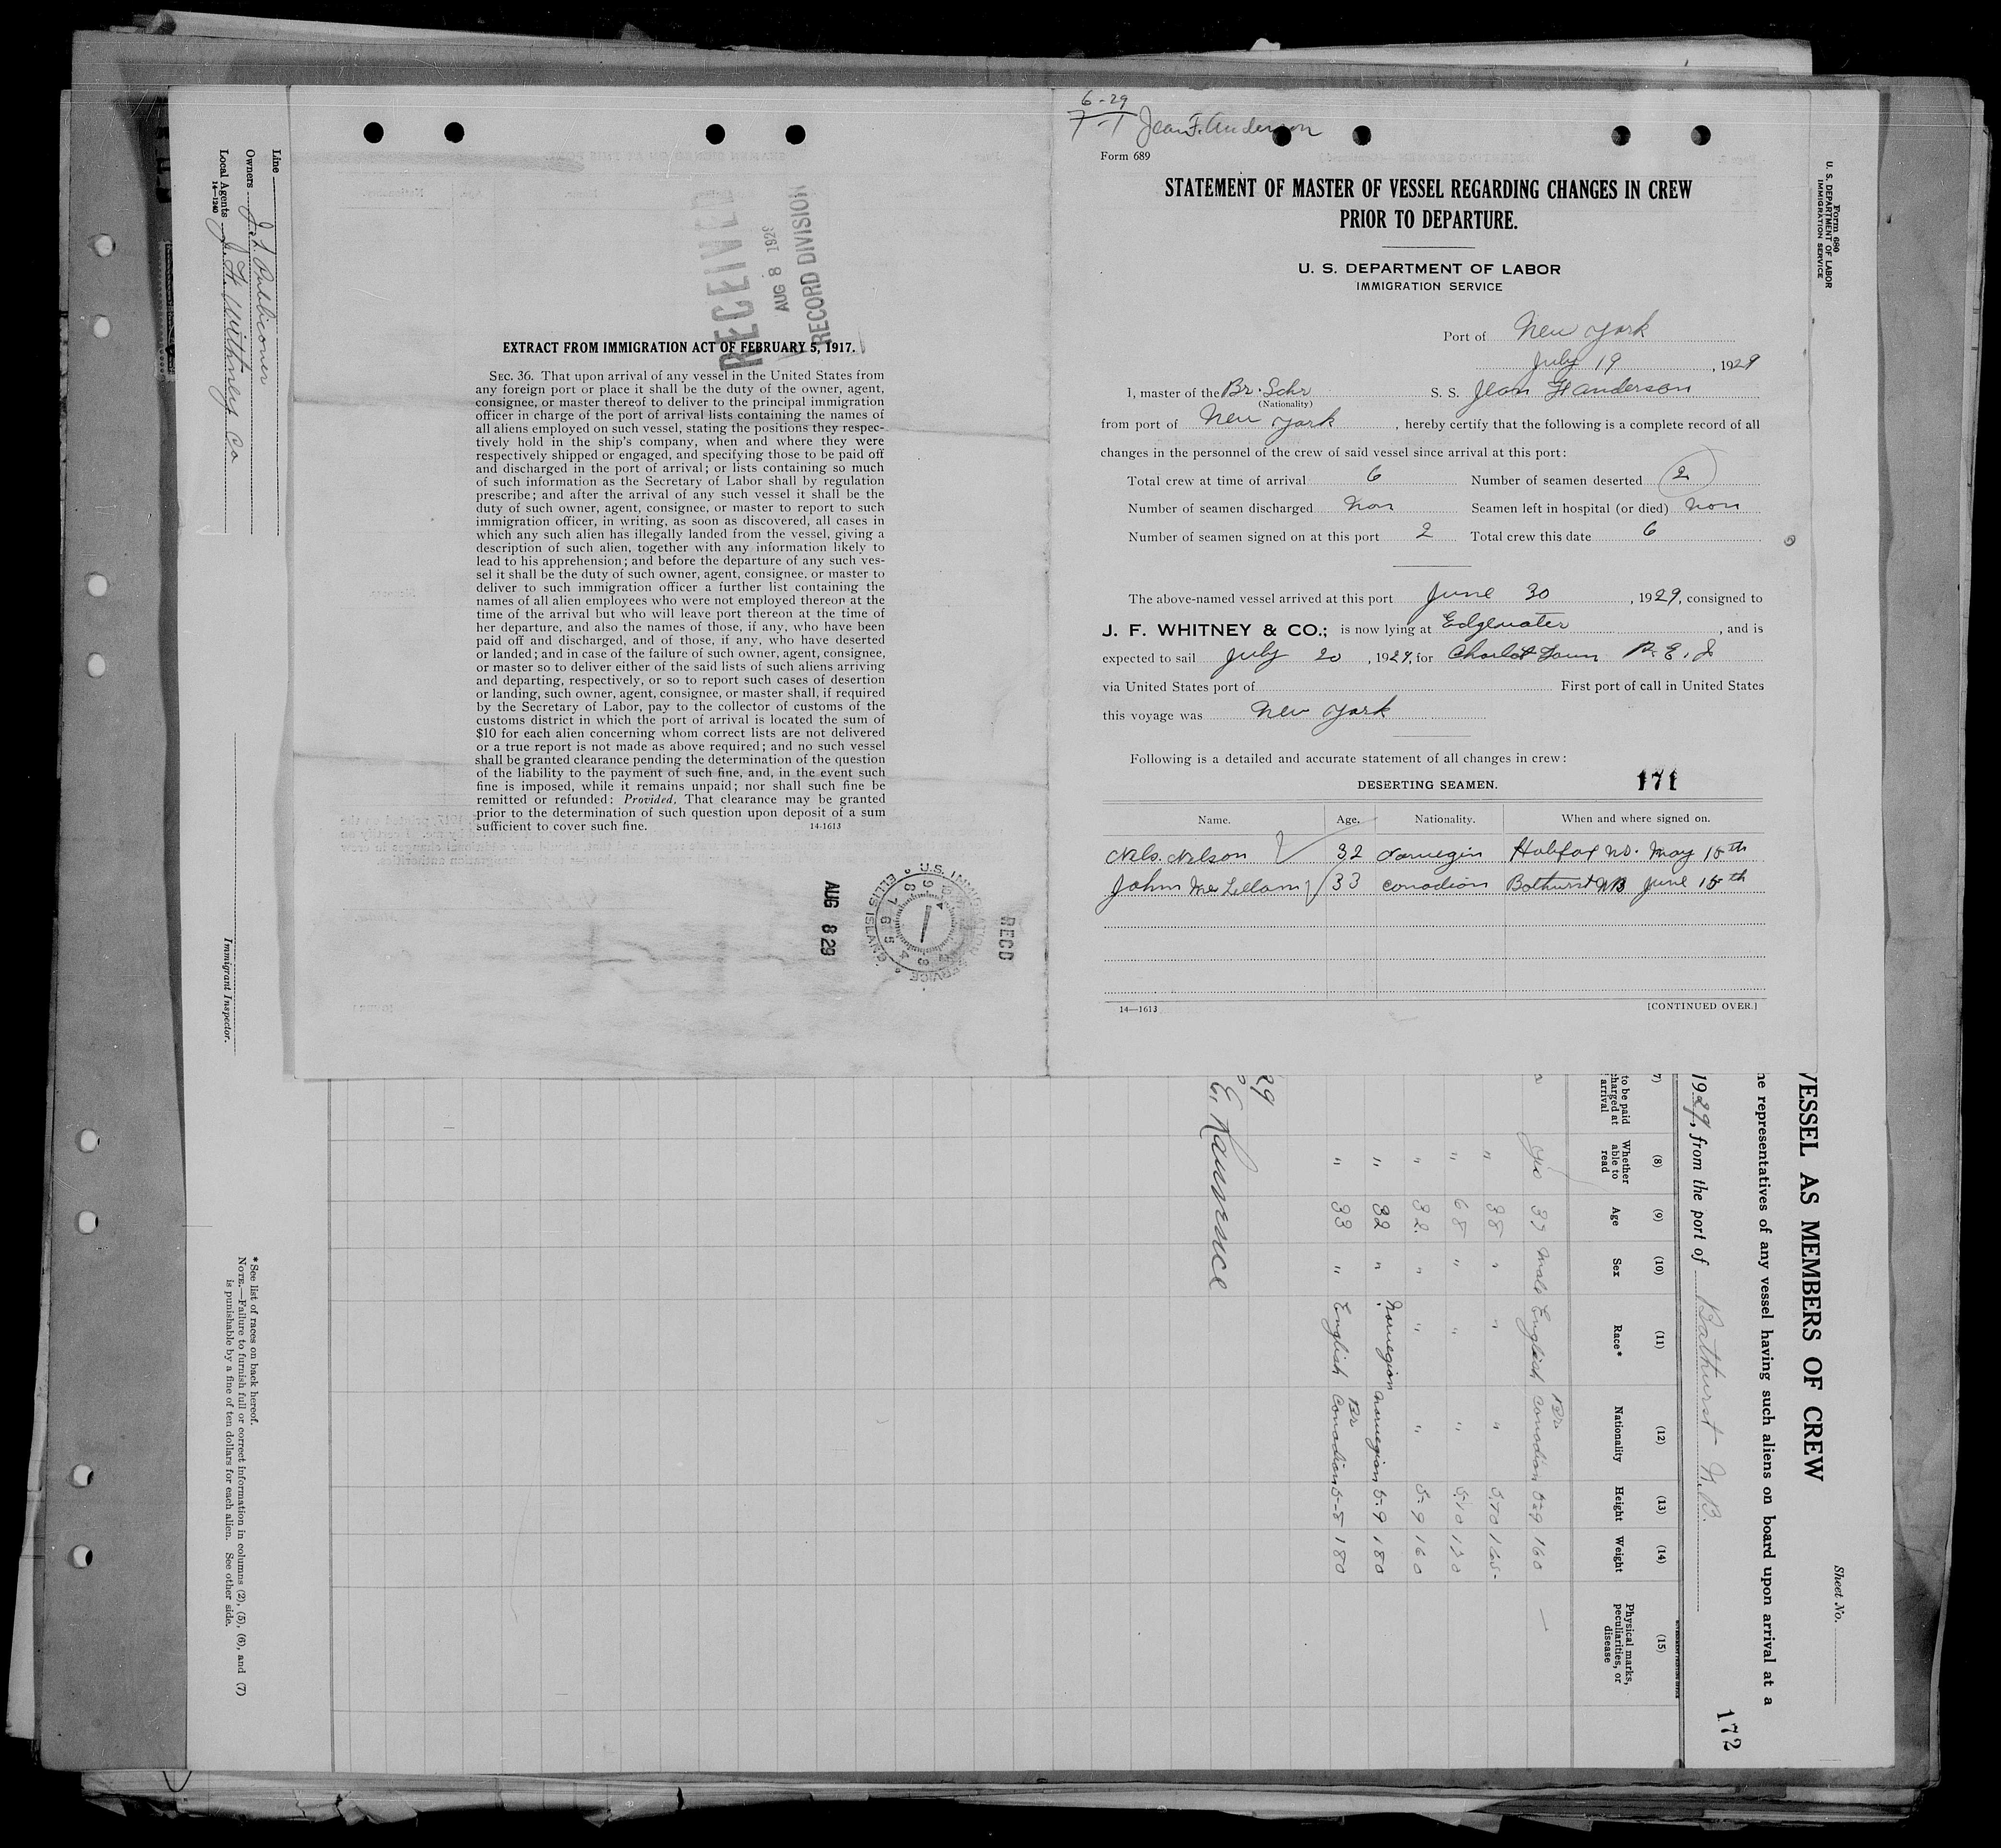 Line
Owners J. A. Publicover
Local Agents J. F. Whitney Co
14-1240
Immigrant Inspector.
* See list of races on back hereof.
NOTE.—Failure to furnish full or correct information in columns (2), (5), (6), and (7)
is punishable by a fine of ten dollars for each alien. See other side.
RECEIVED
AUG 8 1929
RECORD DIVISION
EXTRACT FROM IMMIGRATION ACT OF FEBRUARY 5, 1917.
SEC. 36. That upon arrival of any vessel in the United States from
any foreign port or place it shall be the duty of the owner, agent,
consignee, or master thereof to deliver to the principal immigration
officer in charge of the port of arrival lists containing the names of
all aliens employed on such vessel, stating the positions they respec-
tively hold in the ship's company, when and where they were
respectively shipped or engaged, and specifying those to be paid off
and discharged in the port of arrival; or lists containing so much
of such information as the Secretary of Labor shall by regulation
prescribe; and after the arrival of any such vessel it shall be the
duty of such owner, agent, consignee, or master to report to such
immigration officer, in writing, as soon as discovered, all cases in
which any such alien has illegally landed from the vessel, giving a
description of such alien, together with any information likely to
lead to his apprehension; and before the departure of any such ves-
sel it shall be the duty of such owner, agent, consignee, or master to
deliver to such immigration officer a further list containing the
names of all alien employees who were not employed thereon at the
time of the arrival but who will leave port thereon at the time of
her departure, and also the names of those, if any, who have been
paid off and discharged, and of those, if any, who have deserted
or landed; and in case of the failure of such owner, agent, consignee,
or master so to deliver either of the said lists of such aliens arriving
and departing, respectively, or so to report such cases of desertion
or landing, such owner, agent, consignee, or master shall, if required
by the Secretary of Labor, pay to the collector of customs of the
customs district in which the port of arrival is located the sum of
$10 for each alien concerning whom correct lists are not delivered
or a true report is not made as above required; and no such vessel
shall be granted clearance pending the determination of the question
of the liability to the payment of such fine, and, in the event such
fine is imposed, while it remains unpaid; nor shall such fine be
remitted or refunded: Provided, That clearance may be granted
prior to the determination of such question upon deposit of a sum
sufficient to cover such fine.
14-1613
AUG 8 29
U.S. IMMIGRATION SERVICE ELLIS ISLAND
RECD
6-29
7-1 Jean F. Anderson
Form 689
STATEMENT OF MASTER OF VESSEL REGARDING CHANGES IN CREW
PRIOR TO DEPARTURE.
U. S. DEPARTMENT OF LABOR
IMMIGRATION SERVICE
Port of New York
July 19, 1929
I, master of the Br. Schr S. S. Jean F Anderson
(Nationality)
from port of New York, hereby certify that the following is a complete record of all
changes in the personnel of the crew of said vessel since arrival at this port:
Total crew at time of arrival 6 Number of seamen deserted 2
Number of seamen discharged non Seamen left in hospital (or died) non
Number of seamen signed on at this port 2 Total crew this date 6
The above-named vessel arrived at this port June 30, 1929, consigned to
J. F. WHITNEY & CO.; is now lying at Edgewater, and is
expected to sail July 20, 1929, for Charlottown P. E. I
via United States port of First port of call in United States
this voyage was New York
Following is a detailed and accurate statement of all changes in crew:
DESERTING SEAMEN. 171
Name. Age. Nationality. When and where signed on.
Nels. Nelson 32 Norwegin Halifax NS. May 15th
John Mc Lellan 33 Canadian Bathurst NB June 15th
14—1613
[CONTINUED OVER.]
Form 680
U. S. DEPARTMENT OF LABOR
IMMIGRATION SERVICE
Sheet No.
VESSEL AS MEMBERS OF CREW
he representatives of any vessel having such aliens on board upon arrival at a
1929, from the port of Bathurst N.B.
172
7) (8) (9) (10) (11) (12) (13) (14) (15)
to be paid
charged at
arrival
Whether
able to
read
Age
Sex
Race*
Nationality
Height
Weight
Physical marks,
peculiarities, or
disease
Yes 37 Male English Br. Canadian 5-9 160 —
" 38 " " " 5,10 165-
" 68 " " " 5,10 130
" 32 " " " 5-9 160
" 32 " Norwegian Norwegian 5-9 180
" 33 " English Br. Canadian 5-8 180
29
E. Lawrence